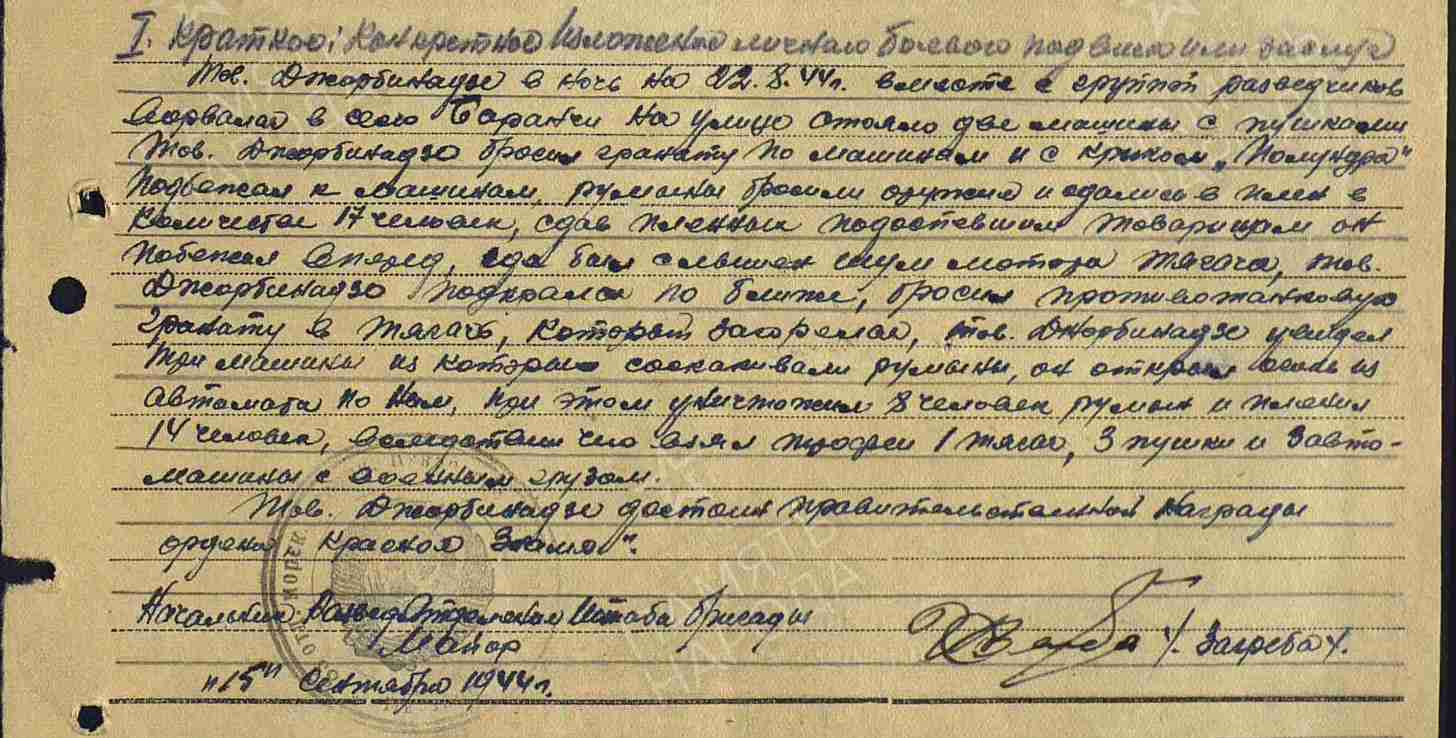 I. Краткое, конкретное изложение личного боевого подвига или заслуг
Тов. Джорбинадзе в ночь на 22.8.44г. вместе с группой разведчиков
ворвался в село Баранчи на улице стояло две машины с пушками
Тов. Джорбинадзе бросил гранату по машинам и с криком „Полундра"
подбежал к машинам, румыны бросили оружие и сдались в плен в
количестве 17 человек, сдав пленных подоспевшим товарищам он
побежал вперед, где был слышен шум мотора тягача, тов.
Джорбинадзе подкрался по ближе, бросил противотанковую
гранату в тягач, который загорелся, тов. Джорбинадзе увидел
три машины из которых соскакивали румыны, он открыл огонь из
автомата по ним, при этом уничтожил 8 человек румын и пленил
14 человек, вследствии чего взял трофеи 1 тягач, 3 пушки и 3 авто-
машины с военным грузом.
Тов. Джорбинадзе достоин правительственной награды
ордена Красное Знамя".
Начальник Развед. Отделения Штаба бригады
Майор
/. Загреба /.
"15" Сентября 1944г.
ПАМЯТЬ
НАРОДА